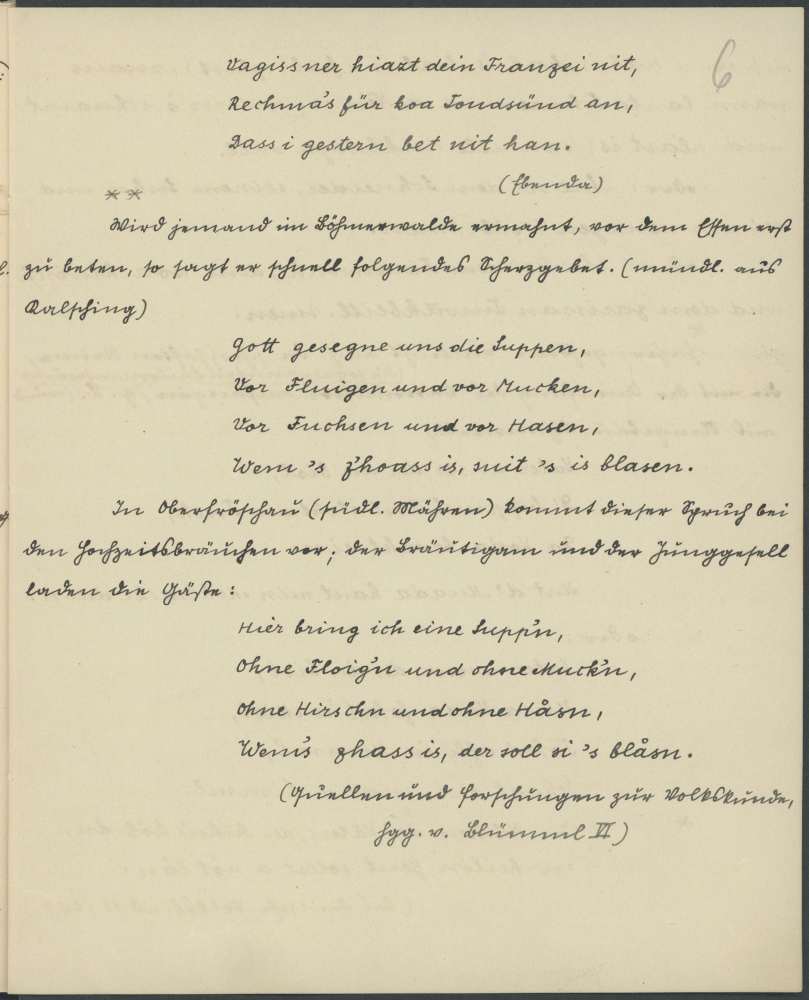 6
Vagiss ner hiazt dein Franzei nit,
Rechma's für koa Tondsünd an,
Dass i gestern bet nit han.
(Ebenda)
**
Wird jemand im Böhmerwalde ermahnt, vor dem Essen erst
zu beten, so sagt er schnell folgendes Scherzgebet. (mündl. aus
Kalsching)
Gott gesegne uns die Suppen,
Vor Fluigen und vor Mucken,
Vor Fuchsen und vor Hasen,
Wem 's z'hoass is, muit 's is blasen.
In Oberfröschau (südl. Mähren) kommt dieser Spruch bei
den Hochzeitsbräuchen vor; der Bräutigam und der Junggesell
laden die Gäste:
Hier bring ich eine Supp'n,
Ohne Floig'n und ohne Muck'n,
Ohne Hirschn und ohne Håsn,
Wem's zhass is, der soll si 's blåsn.
(Quellen und Forschungen zur Volkskunde,
hgg. v. Blümml VI)